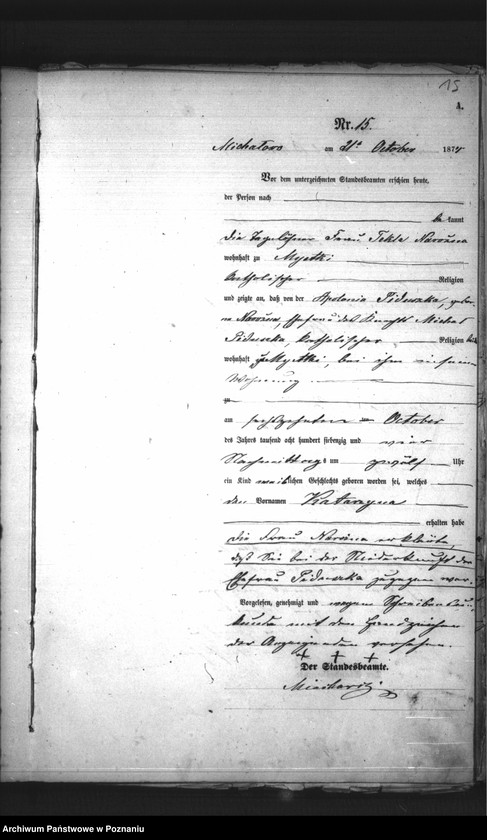 15
A.
Nr. 15.
Michalowo am 21ten October 1874
Vor dem unterzeichneten Standesbeamten erschien heute,
der Person nach
bekannt
die Tagelöhner Frau Tekla
wohnhaft zu
katholischer Religion
und zeigte an, daß von der Apolonia Piduszka, geborne
Ehefrau des Knechts Michal
Piduszka, katholischer Religion
wohnhaft zu bei ihm in seiner
Wohnung
zu
am sechszehnten October
des Jahres tausend acht hundert siebenzig und vier
Nachmittags um zwölf Uhr
ein Kind weiblichen Geschlechts geboren worden sei, welches
den Vornamen Katarzyna
erhalten habe
die Frau erklärte,
daß Sie bei der Niederkunft der
Ehefrau Piduszka zugegen war.
Vorgelesen, genehmigt und wegen Schreibensun-
kunde mit dem Handzeichen
der Anzeigenden versehen.
+ + +
Der Standesbeamte.
Archiwum Państwowe w Poznaniu